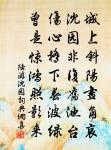 城上斜陽畫角哀
沈園非復舊池台
傷心橋下春波綠
曾是驚鴻照影來
陸游沈園詞典網書